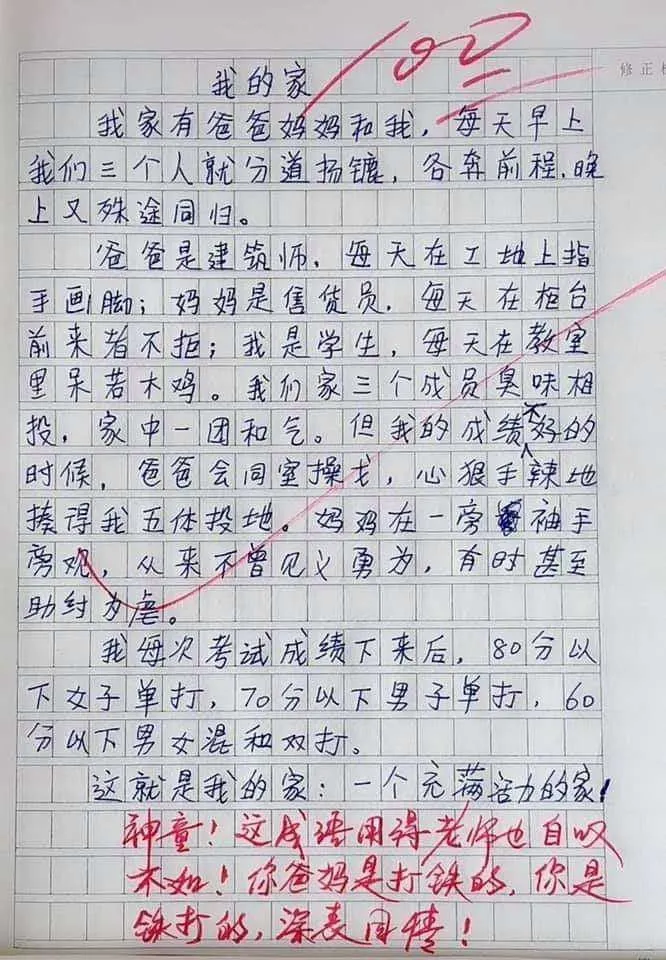 100
修正栏
我的家
我家有爸爸妈妈和我，每天早上
我们三个人就分道扬镳，各奔前程，晚
上又殊途同归。
爸爸是建筑师，每天在工地上指
手画脚；妈妈是售货员，每天在柜台
前来者不拒；我是学生，每天在教室
里呆若木鸡。我们家三个成员臭味相
投，家中一团和气。但我的成绩不好的
时候，爸爸会同室操戈，心狠手辣地
揍得我五体投地。妈妈在一旁袖手
旁观，从来不曾见义勇为，有时甚至
助纣为虐。
我每次考试成绩下来后，80分以
下女子单打，70分以下男子单打，60
分以下男女混和双打。
这就是我的家：一个充满活力的家！
神童！这成语用得老师也自叹
不如！你爸妈是打铁的，你是
铁打的，深表同情！